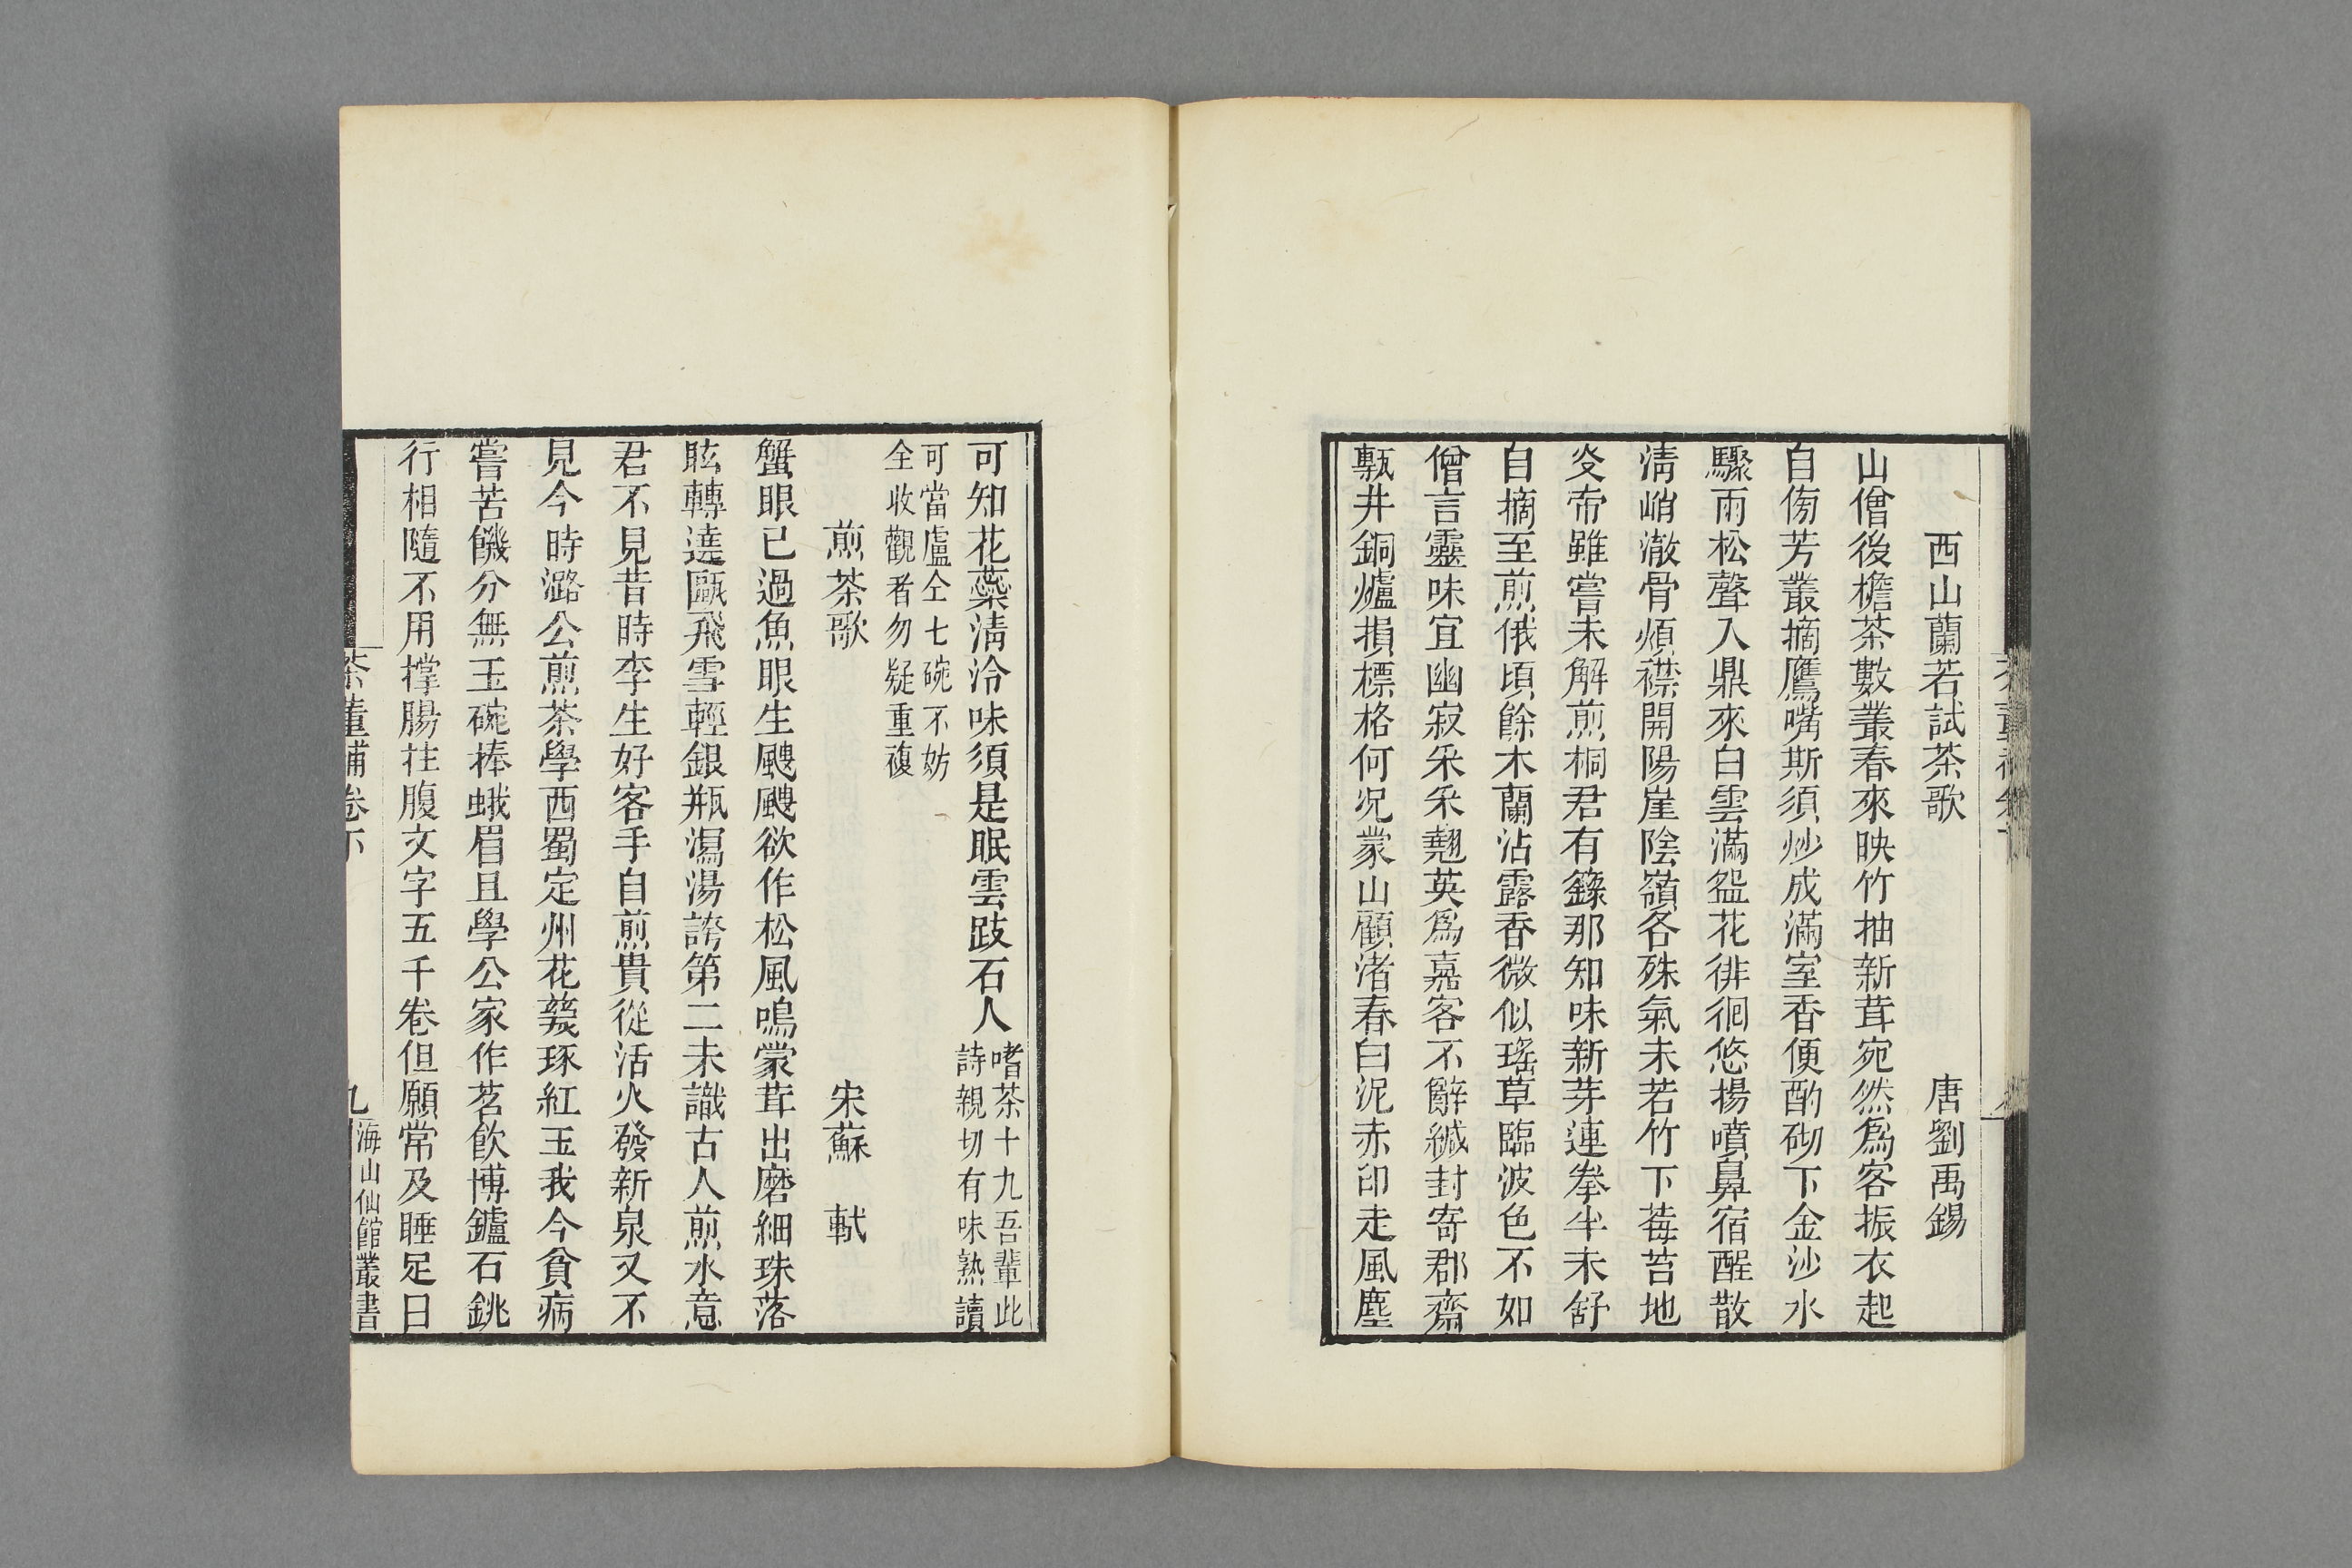 西山蘭若試茶歌 唐劉禹錫
山僧後檐茶數叢春來映竹抽新茸宛然爲客振衣起
自傍芳叢摘鷹嘴斯須炒成滿室香便酌砌下金沙水
驟雨松聲入鼎來白雲滿盌花徘徊悠揚噴鼻宿酲散
淸峭澈骨煩襟開陽崖陰嶺各殊氣未若竹下莓苔地
炎帝雖嘗未解煎桐君有籙那知味新芽連拳半未舒
自摘至煎俄頃餘木蘭沾露香微似瑤草臨波色不如
僧言靈味宜幽寂采采翹英爲嘉客不辭緘封寄郡齋
甎井銅爐損標格何況蒙山顧渚春白泥赤印走風塵
可知花蘂淸泠味須是眠雲跂石人
嗜茶十九吾輩此
詩親切有味熟讀
可當盧仝七碗不妨
全收觀者勿疑重複
煎茶歌 宋蘇 軾
蟹眼已過魚眼生颼颼欲作松風鳴蒙茸出磨細珠落
眩轉遶甌飛雪輕銀瓶瀉湯誇第二未識古人煎水意
君不見昔時李生好客手自煎貴從活火發新泉又不
見今時潞公煎茶學西蜀定州花瓷琢紅玉我今貧病
嘗苦饑分無玉碗捧蛾眉且學公家作茗飮博鑪石銚
行相隨不用撑腸拄腹文字五千卷但願常及睡足日
茶董補卷下
九
海山仙館叢書